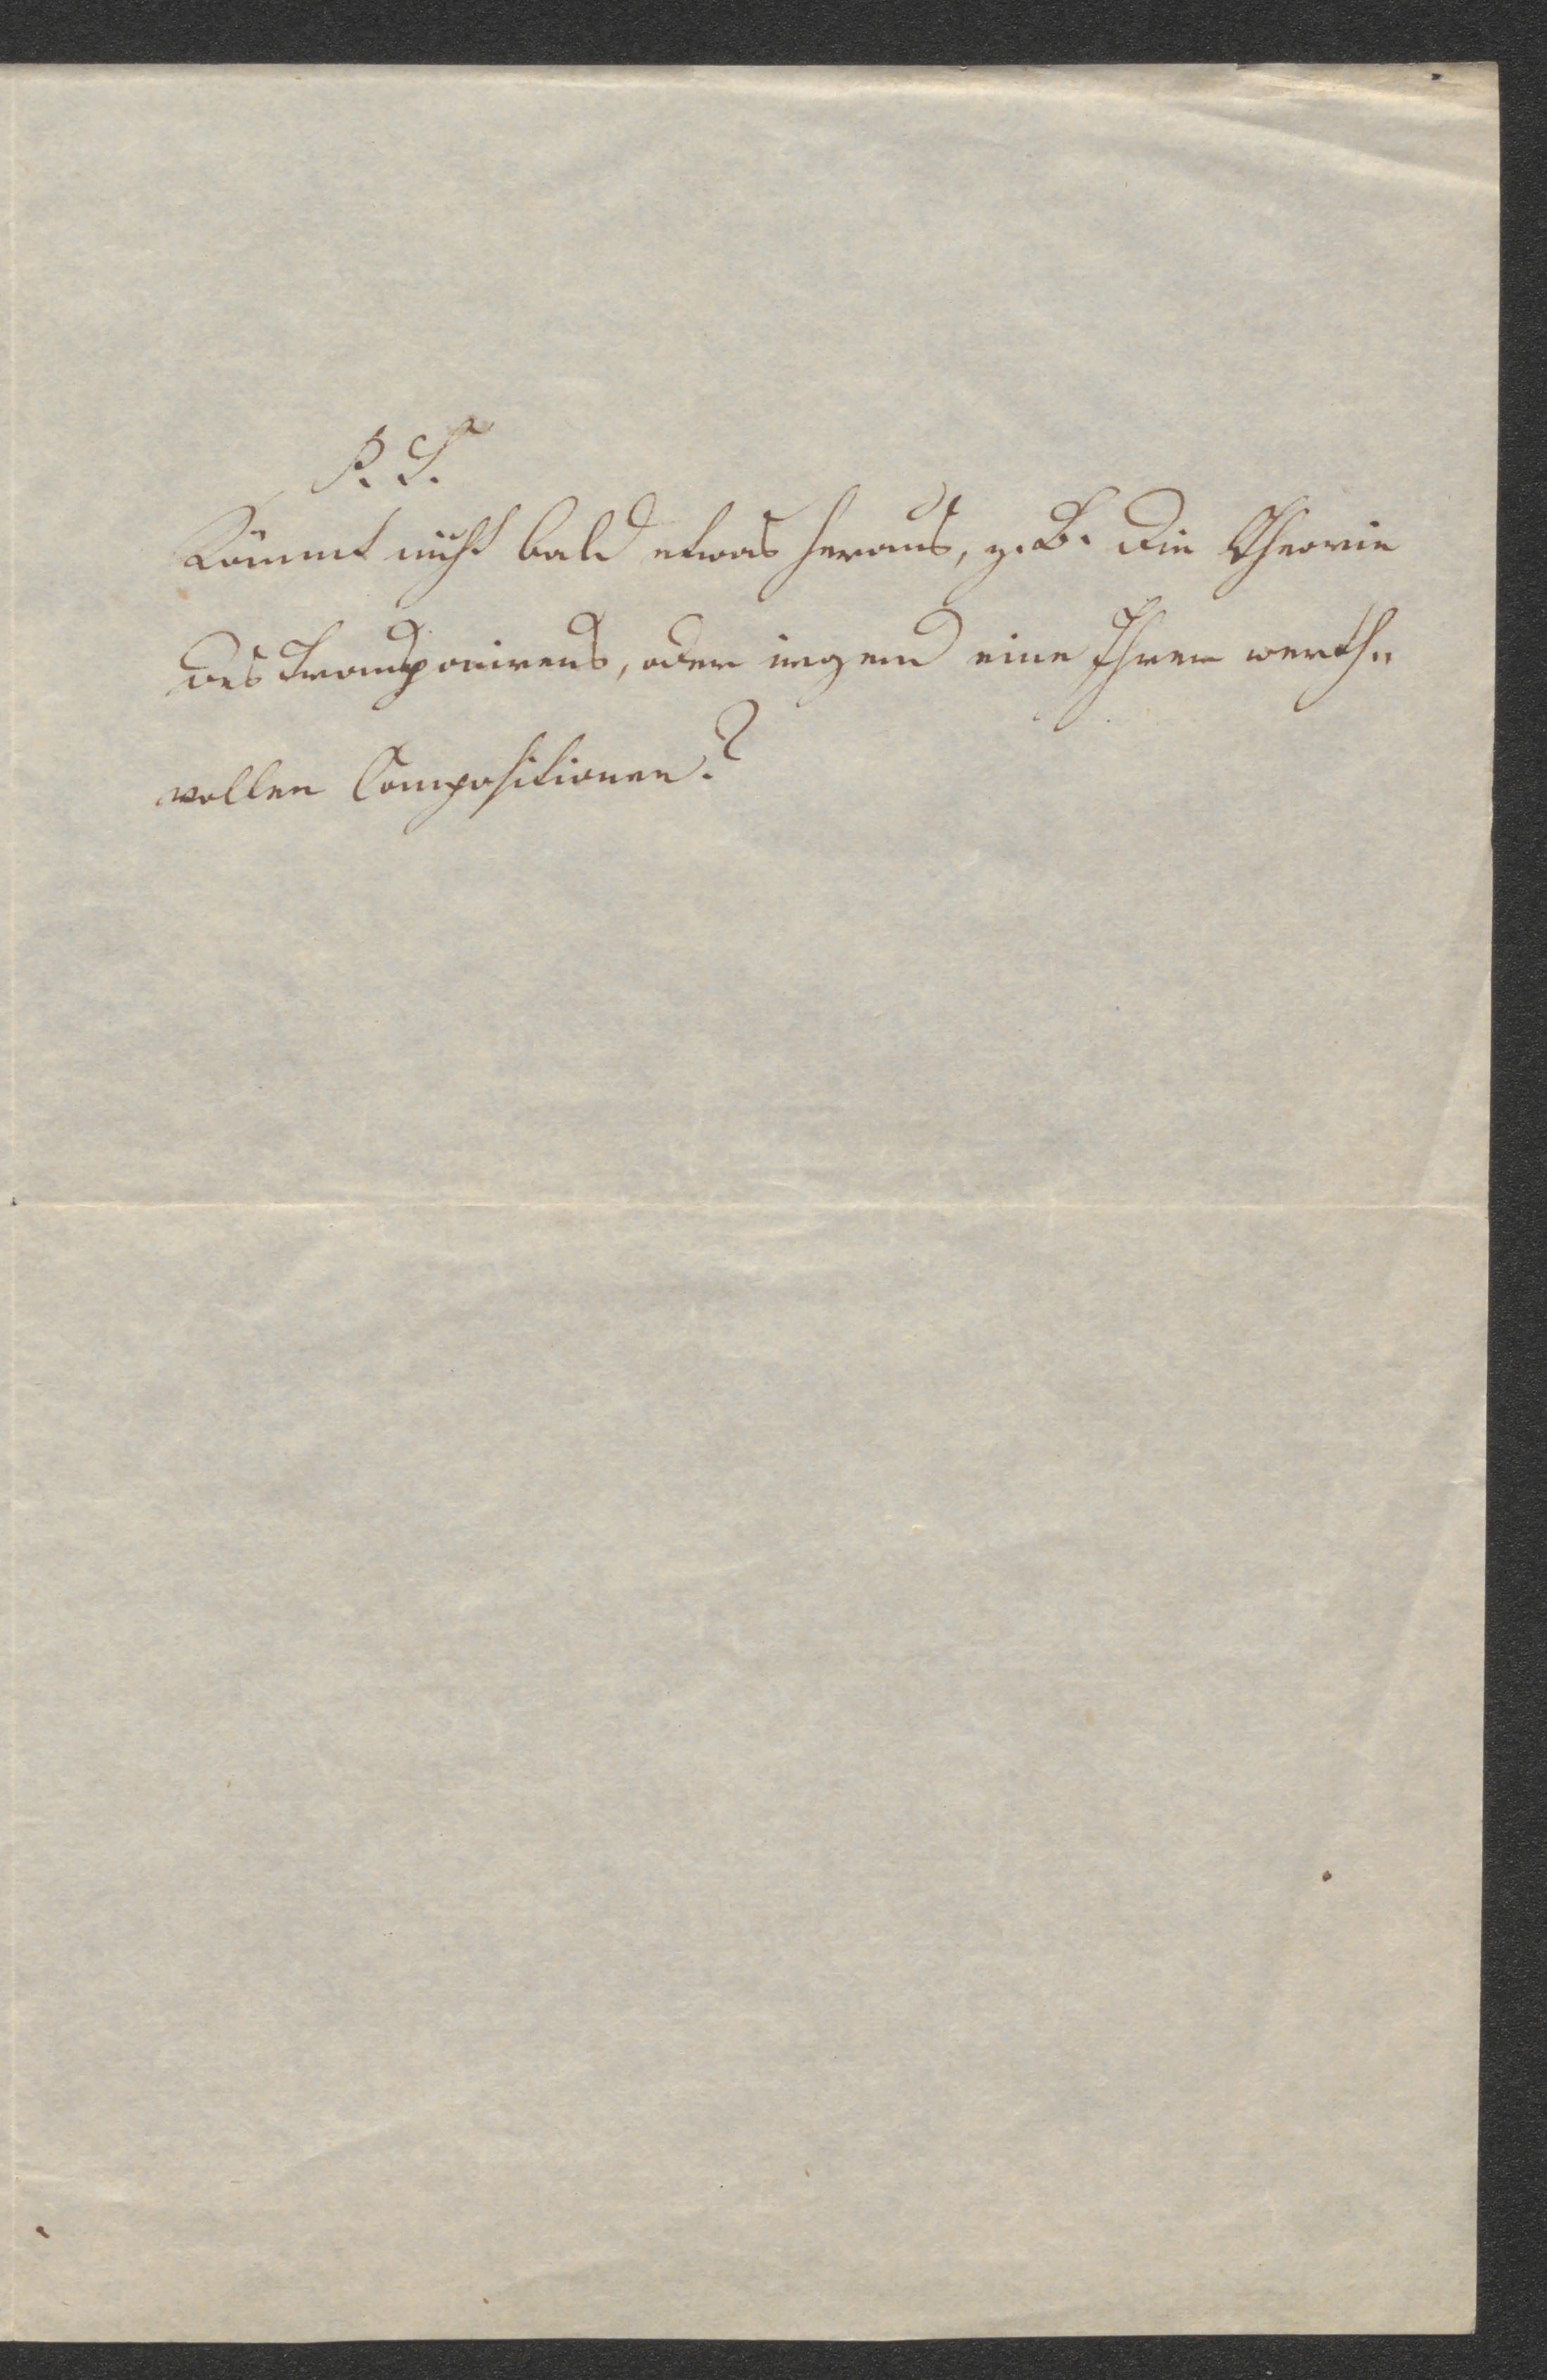 P. S.
Kömmt nicht bald etwas heraus, z. B. die Theorie
des Transponirens, oder irgend eine Ihrer werth„
vollen Compositionen?